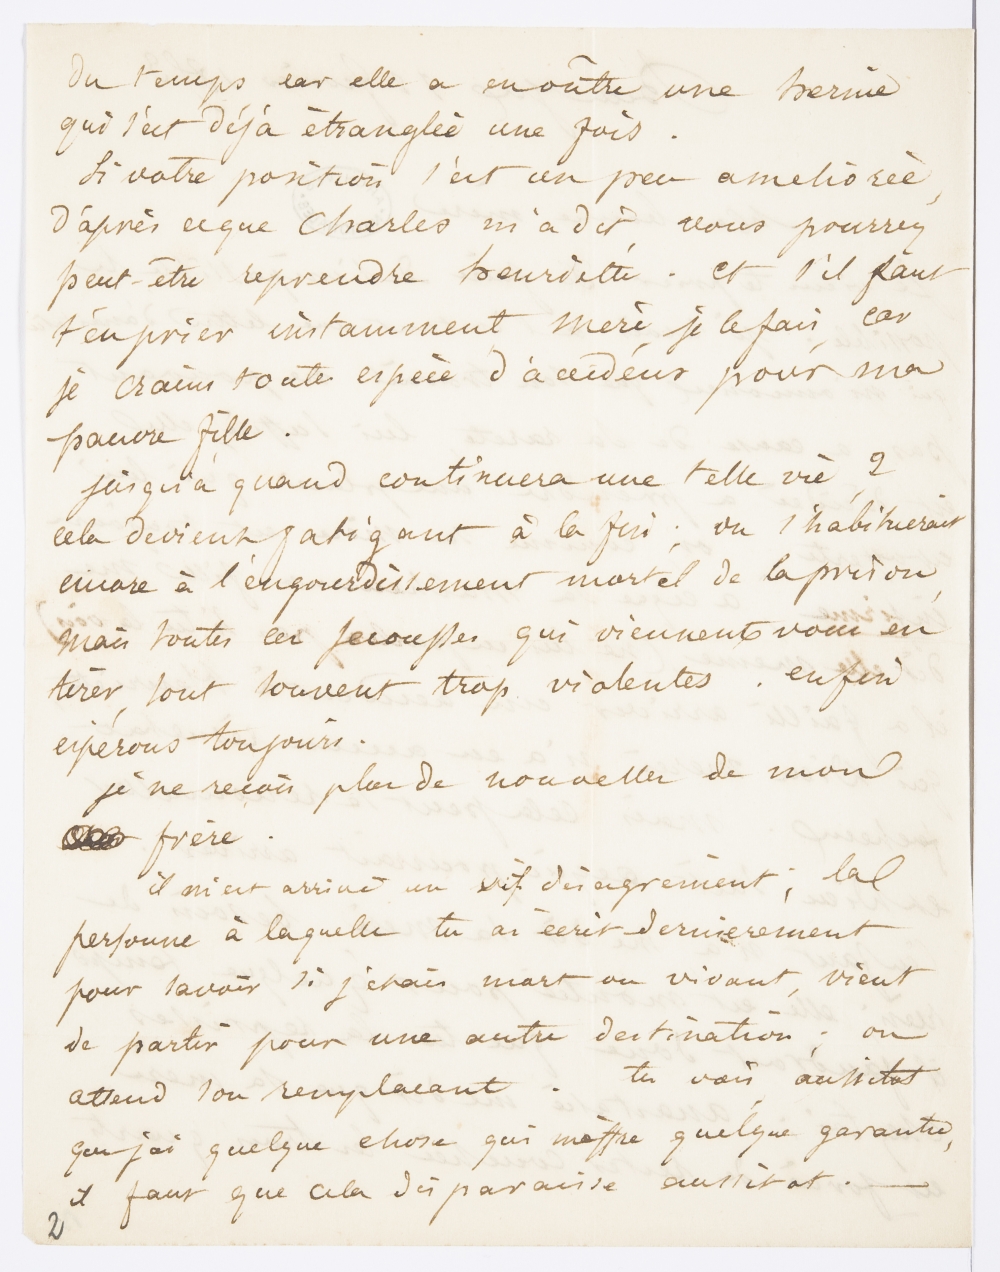 du temps car elle a en oûtre une hernie
qui s'est déjà étranglée une fois.
Si votre position s'est un peu ameliorée,
d'après ceque Charles m'a dit, vous pourrez
peut-être reprendre henriette. et s'il faut
t'en prier instamment, mère, je le fais, car
je crains toute espèce d'accidens pour ma
pauvre fille.
jusqu'à quand continuera une telle vie ?
cela devient fatigant à la fin ; on s'habituerait
encore à l'engourdissement mortel de la prison,
mais toutes ces secousses qui viennent vous en
tirer, sont souvent trop violentes. enfin
espérons toujours.
je ne reçois plus de nouvelles de mon
frère.
il m'est arrivé un vif désagrément ; la
personne à laquelle tu as écrit dernierement
pour savoir si j'étais mort ou vivant, vient
de partir pour une autre destination ; on
attend son remplacant. tu vois, aussitot
que j'ai quelque chose qui m'offre quelque garantie,
il faut que cela disparaisse aussitot. —
2